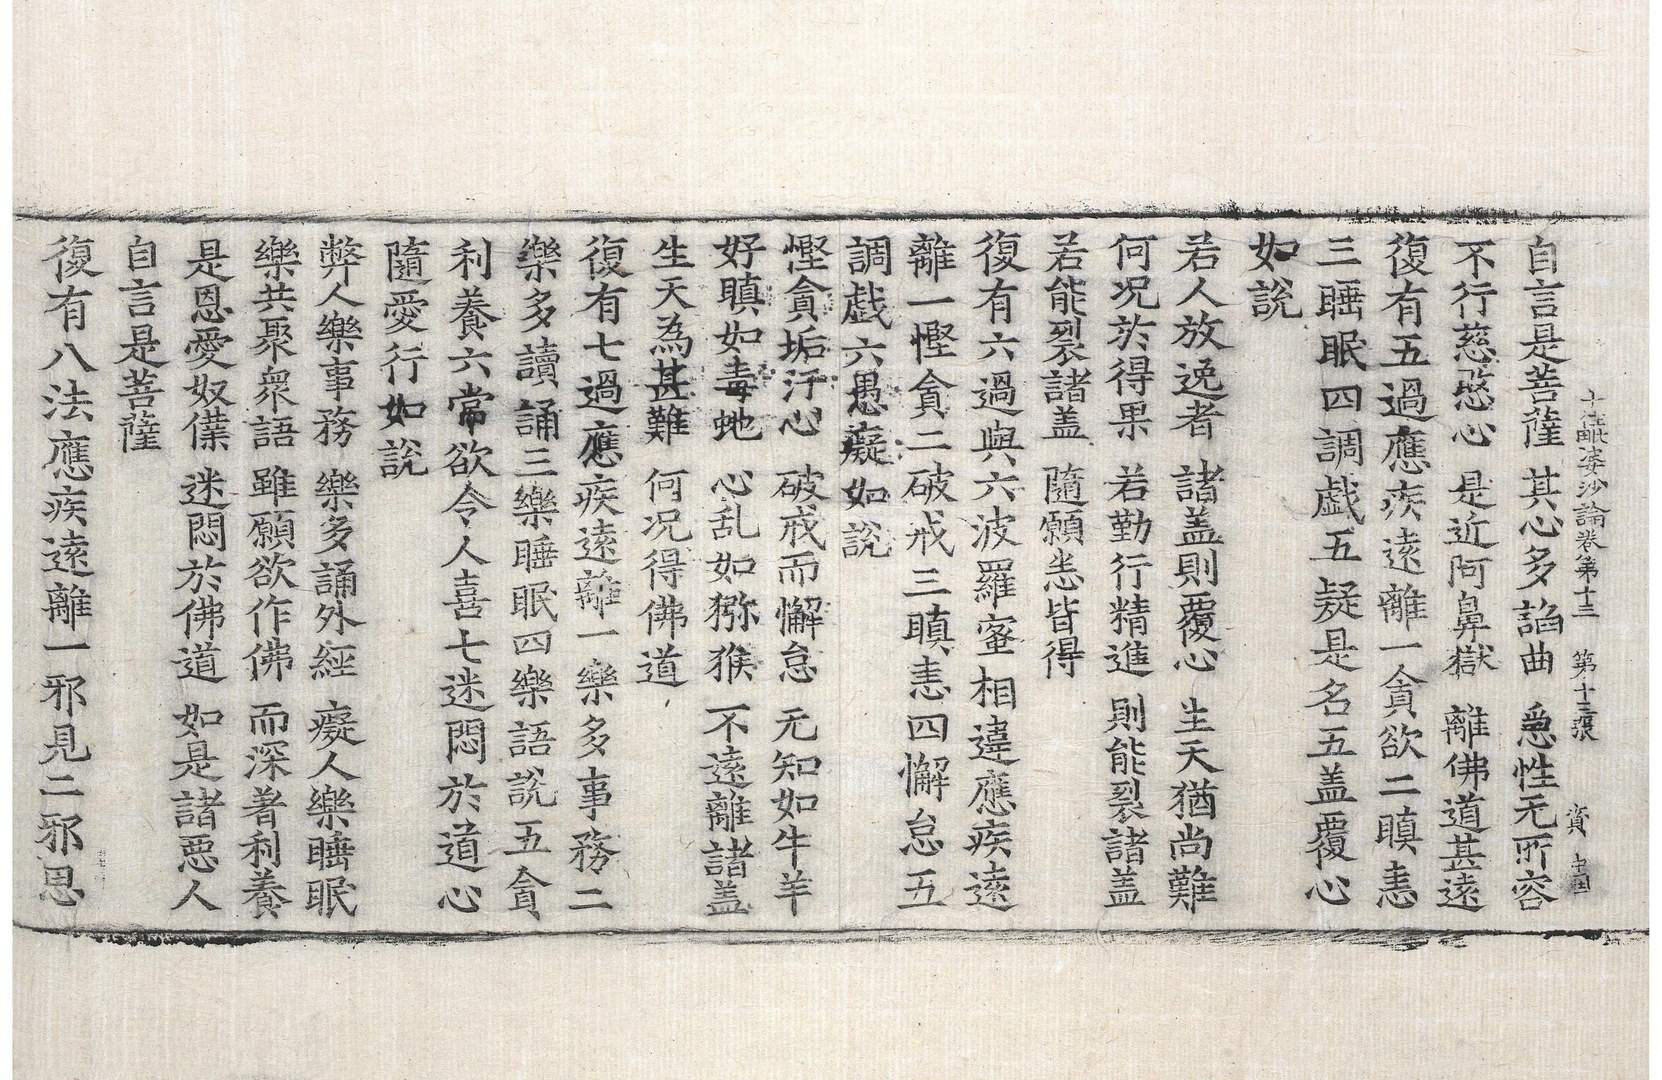 十住毗婆沙論卷第十三　第十三張　資
自言是菩薩　其心多諂曲　急性无所容
不行慈愍心　是近阿鼻獄　離佛道甚遠
復有五過應疾遠離一貪欲二瞋恚
三睡眠四調戲五疑是名五盖覆心
如說
若人放逸者　諸盖則覆心　生天猶尚難
何况於得果　若勤行精進　則能裂諸盖
若能裂諸盖　隨願悉皆得
復有六過與六波羅蜜相違應疾遠
離一慳貪二破戒三瞋恚四懈怠五
調戲六愚癡如說
慳貪垢汙心　破戒而懈怠　无知如牛羊
好瞋如毒虵　心乱如猕猴　不遠離諸盖
生天為甚難　何况得佛道
復有七過應疾遠離一樂多事務二
樂多讀誦三樂睡眠四樂語說五貪
利養六常欲令人喜七迷悶於道心
隨愛行如說
弊人樂事務　樂多誦外經　癡人樂睡眠
樂共聚衆語　雖願欲作佛　而深著利養
是恩愛奴僕　迷悶於佛道　如是諸惡人
自言是菩薩
復有八法應疾遠離一邪見二邪思